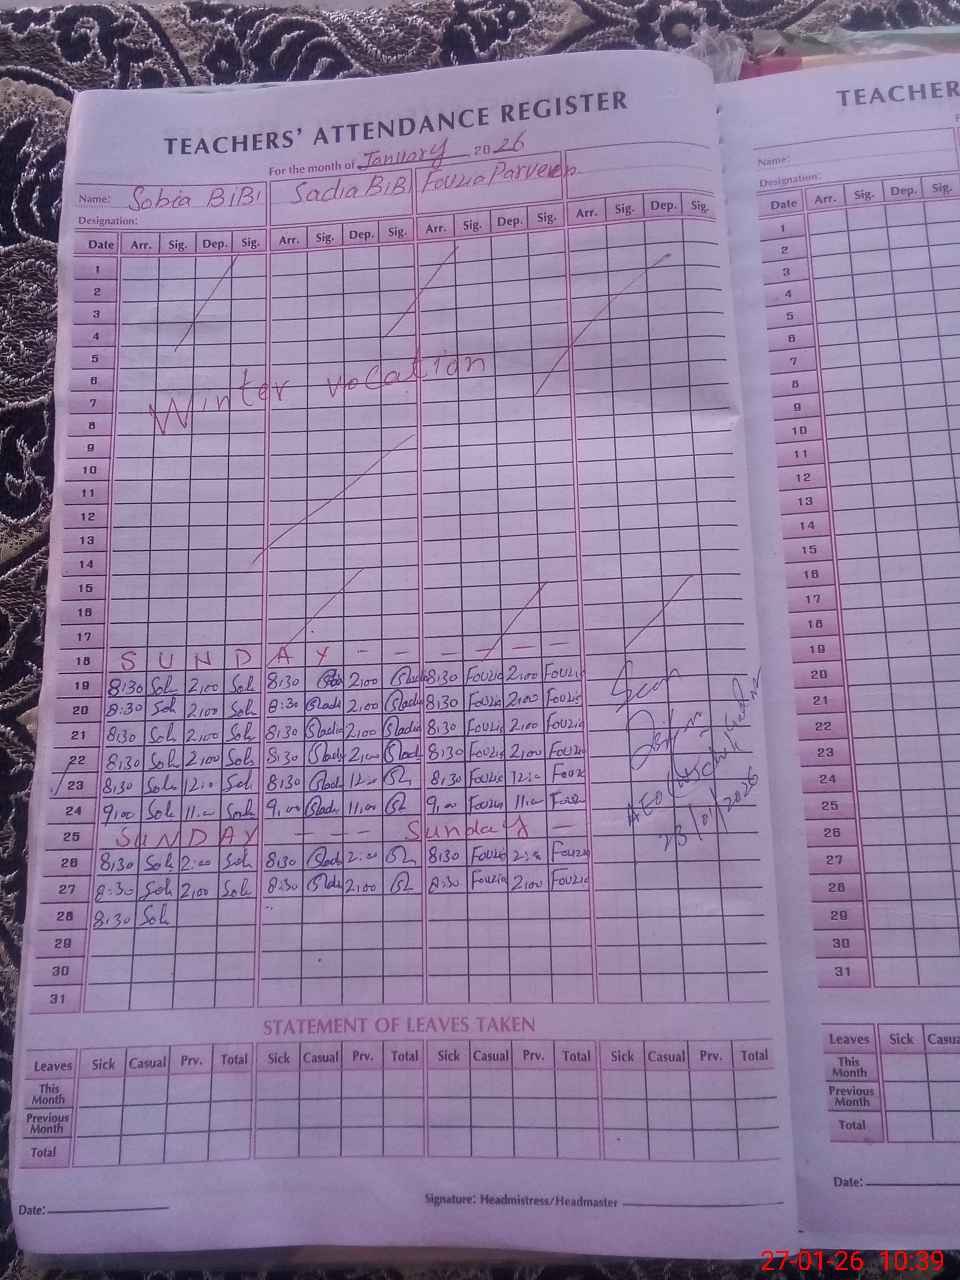 TEACHERS' ATTENDANCE REGISTER
For the month of January 2026
Name: Sobia BiBi Sadia BiBi Fouzia Parveen
Designation:
Date Arr. Sig. Dep. Sig. Arr. Sig. Dep. Sig. Arr. Sig. Dep. Sig. Arr. Sig. Dep. Sig.
1
2
3
4
5
6
Winter vocation
7
8
9
10
11
12
13
14
15
16
17
18 S U N D A Y - - - - - -
19 8:30 Sob 2,00 Sob 8:30 2,00 8:30 Fouzia 2,00 Fouzia
20 8:30 Sob 2,00 Sob 8:30 Sadi 2,00 Sadi 8:30 Fouzia 2,00 Fouzia
21 8:30 Sob 2,00 Sob 8:30 Sadia 2,00 Sadia 8:30 Fouzia 2,00 Fouzia
22 8:30 Sob 2,00 Sob 8:30 Sadi 2,00 Sadi 8:30 Fouzi 2,00 Fouzia
23 8:30 Sob 12:0 Sob 8:30 Sadi 12:0 8:30 Fouzia 12:0 Fouz
24 9,00 Sob 11,0 Sob 9,00 Sadi 11,00 9,00 Fouzia 11,0 Fouz
25 S U N D A Y - - - Sunday -
26 8:30 Sob 2:00 Sob 8:30 Sadi 2:00 8:30 Fouzi 2:00 Fouzia
27 8:30 Sob 2,00 Sob 8:30 Sadi 2,00 8:30 Fouzia 2,00 Fouzia
28 8:30 Sob
29
30
31
Seen
AEO
23/01/2026
STATEMENT OF LEAVES TAKEN
Leaves Sick Casual Prv. Total Sick Casual Prv. Total Sick Casual Prv. Total Sick Casual Prv. Total
This Month
Previous Month
Total
Date:
Signature: Headmistress/Headmaster
TEACHER
Name:
Designation:
Date Arr. Sig. Dep. Sig.
1
2
3
4
5
6
7
8
9
10
11
12
13
14
15
16
17
18
19
20
21
22
23
24
25
26
27
28
29
30
31
Leaves Sick Casua
This Month
Previous Month
Total
Date:
27-01-26 10:39